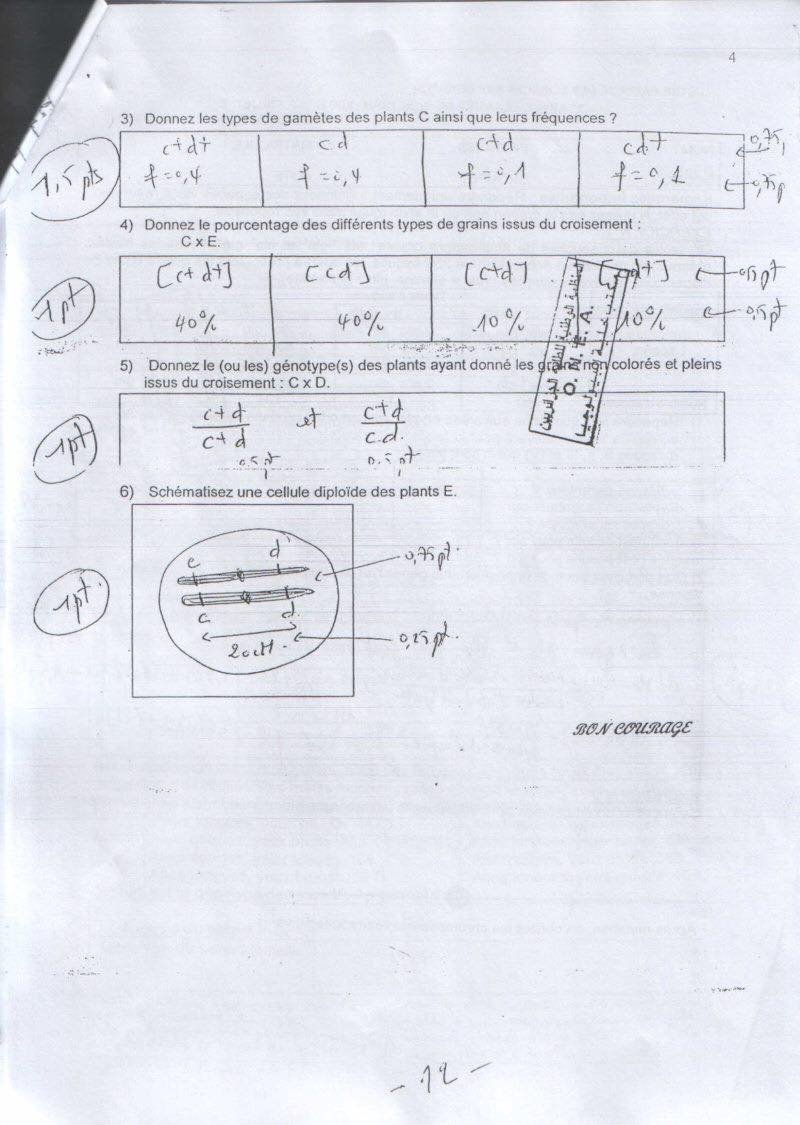 4
3) Donnez les types de gamètes des plants C ainsi que leurs fréquences ?
c+d+ cd c+d cd+ 0,75
f=0,4 f=0,4 f=0,1 f=0,1 0,75p
1,5 pts
4) Donnez le pourcentage des différents types de grains issus du croisement :
C x E.
[c+d+] [cd] [c+d] d+] 0,5 pt
40% 40% 10% 10% 0,5 pt
1pt
المنظمة الوطنية للطلبة الجزائريين
O. N. E. A.
مكتب كلية البيولوجيا
5) Donnez le (ou les) génotype(s) des plants ayant donné les non colorés et pleins
issus du croisement : C x D.
c+d et c+d
c+d c.d.
0.5 pt 0.5 pt
1pt
6) Schématisez une cellule diploïde des plants E.
c d 0,75 pt.
c d.
20cM. 0,25 pt.
1pt.
BON COURAGE
- 12 -